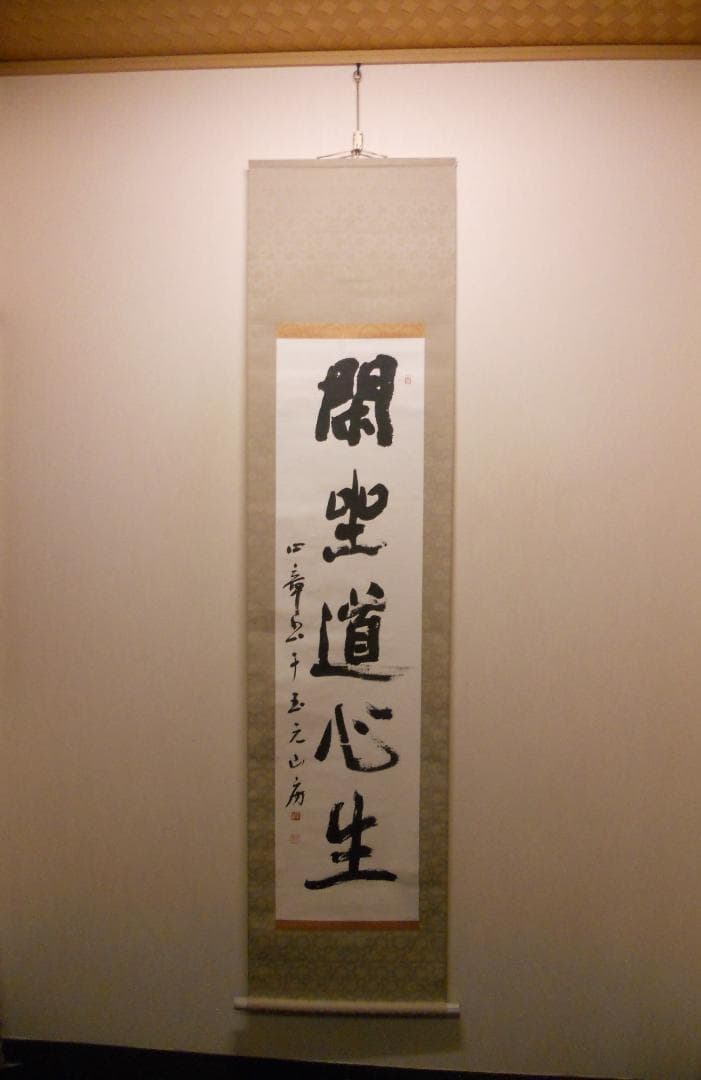 閑坐道心生
四章書于玉元山房